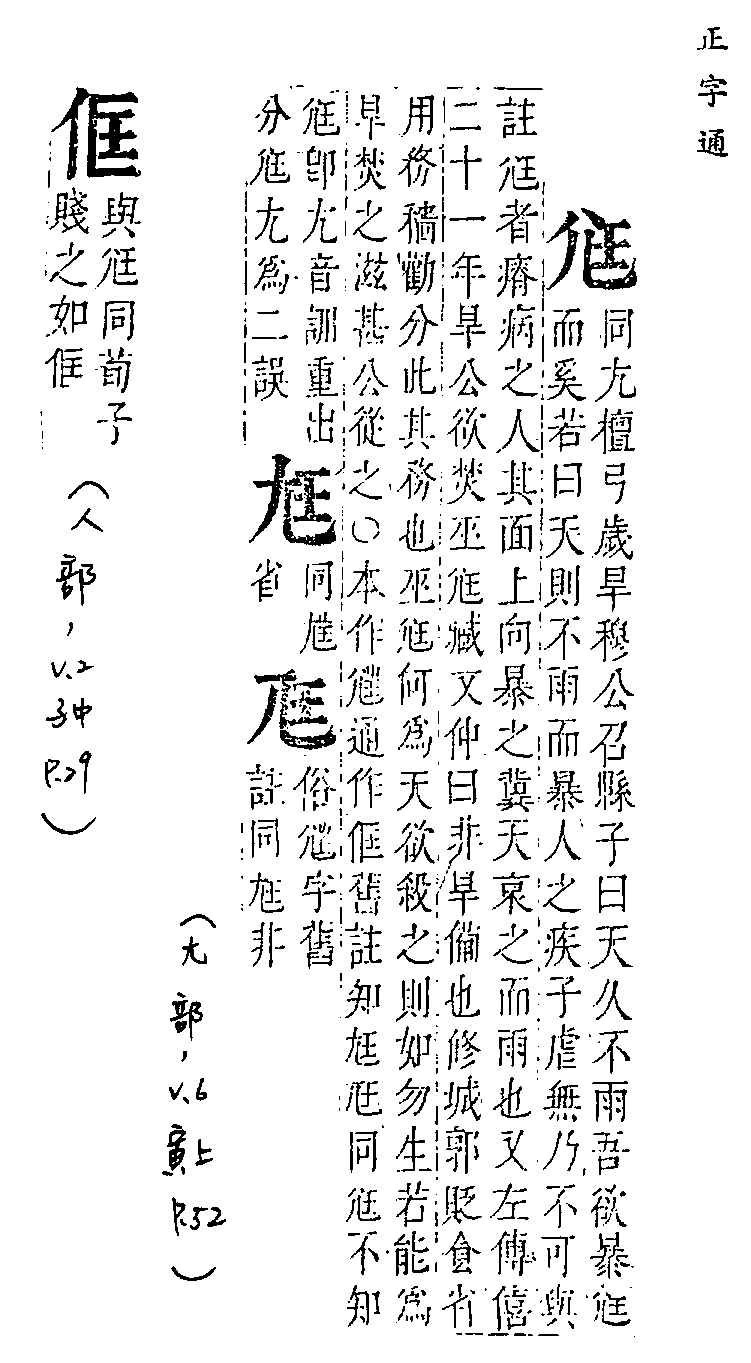 正字通
尩
同尢檀弓歲旱穆公召縣子曰天久不雨吾欲暴尩
而奚若曰天則不雨而暴人之疾子虐無乃不可與
註尩者瘠病之人其面上向暴之冀天哀之而雨也又左傳僖
二十一年旱公欲焚巫尩臧文仲曰非旱備也修城郭貶食省
用務穡勸分此其務也巫尩何爲天欲殺之則如勿生若能爲
旱焚之滋甚公從之○本作尩通作㑌舊註知尫尪同尩不知
尩卽尢音訓重出
分尩尢爲二誤
尫
同尩
省
尪
俗尩字舊
註同尫非
(尢部,v.6寅上P.52)
㑌
與尩同荀子
賤之如㑌
(人部,v.2子中P.29)